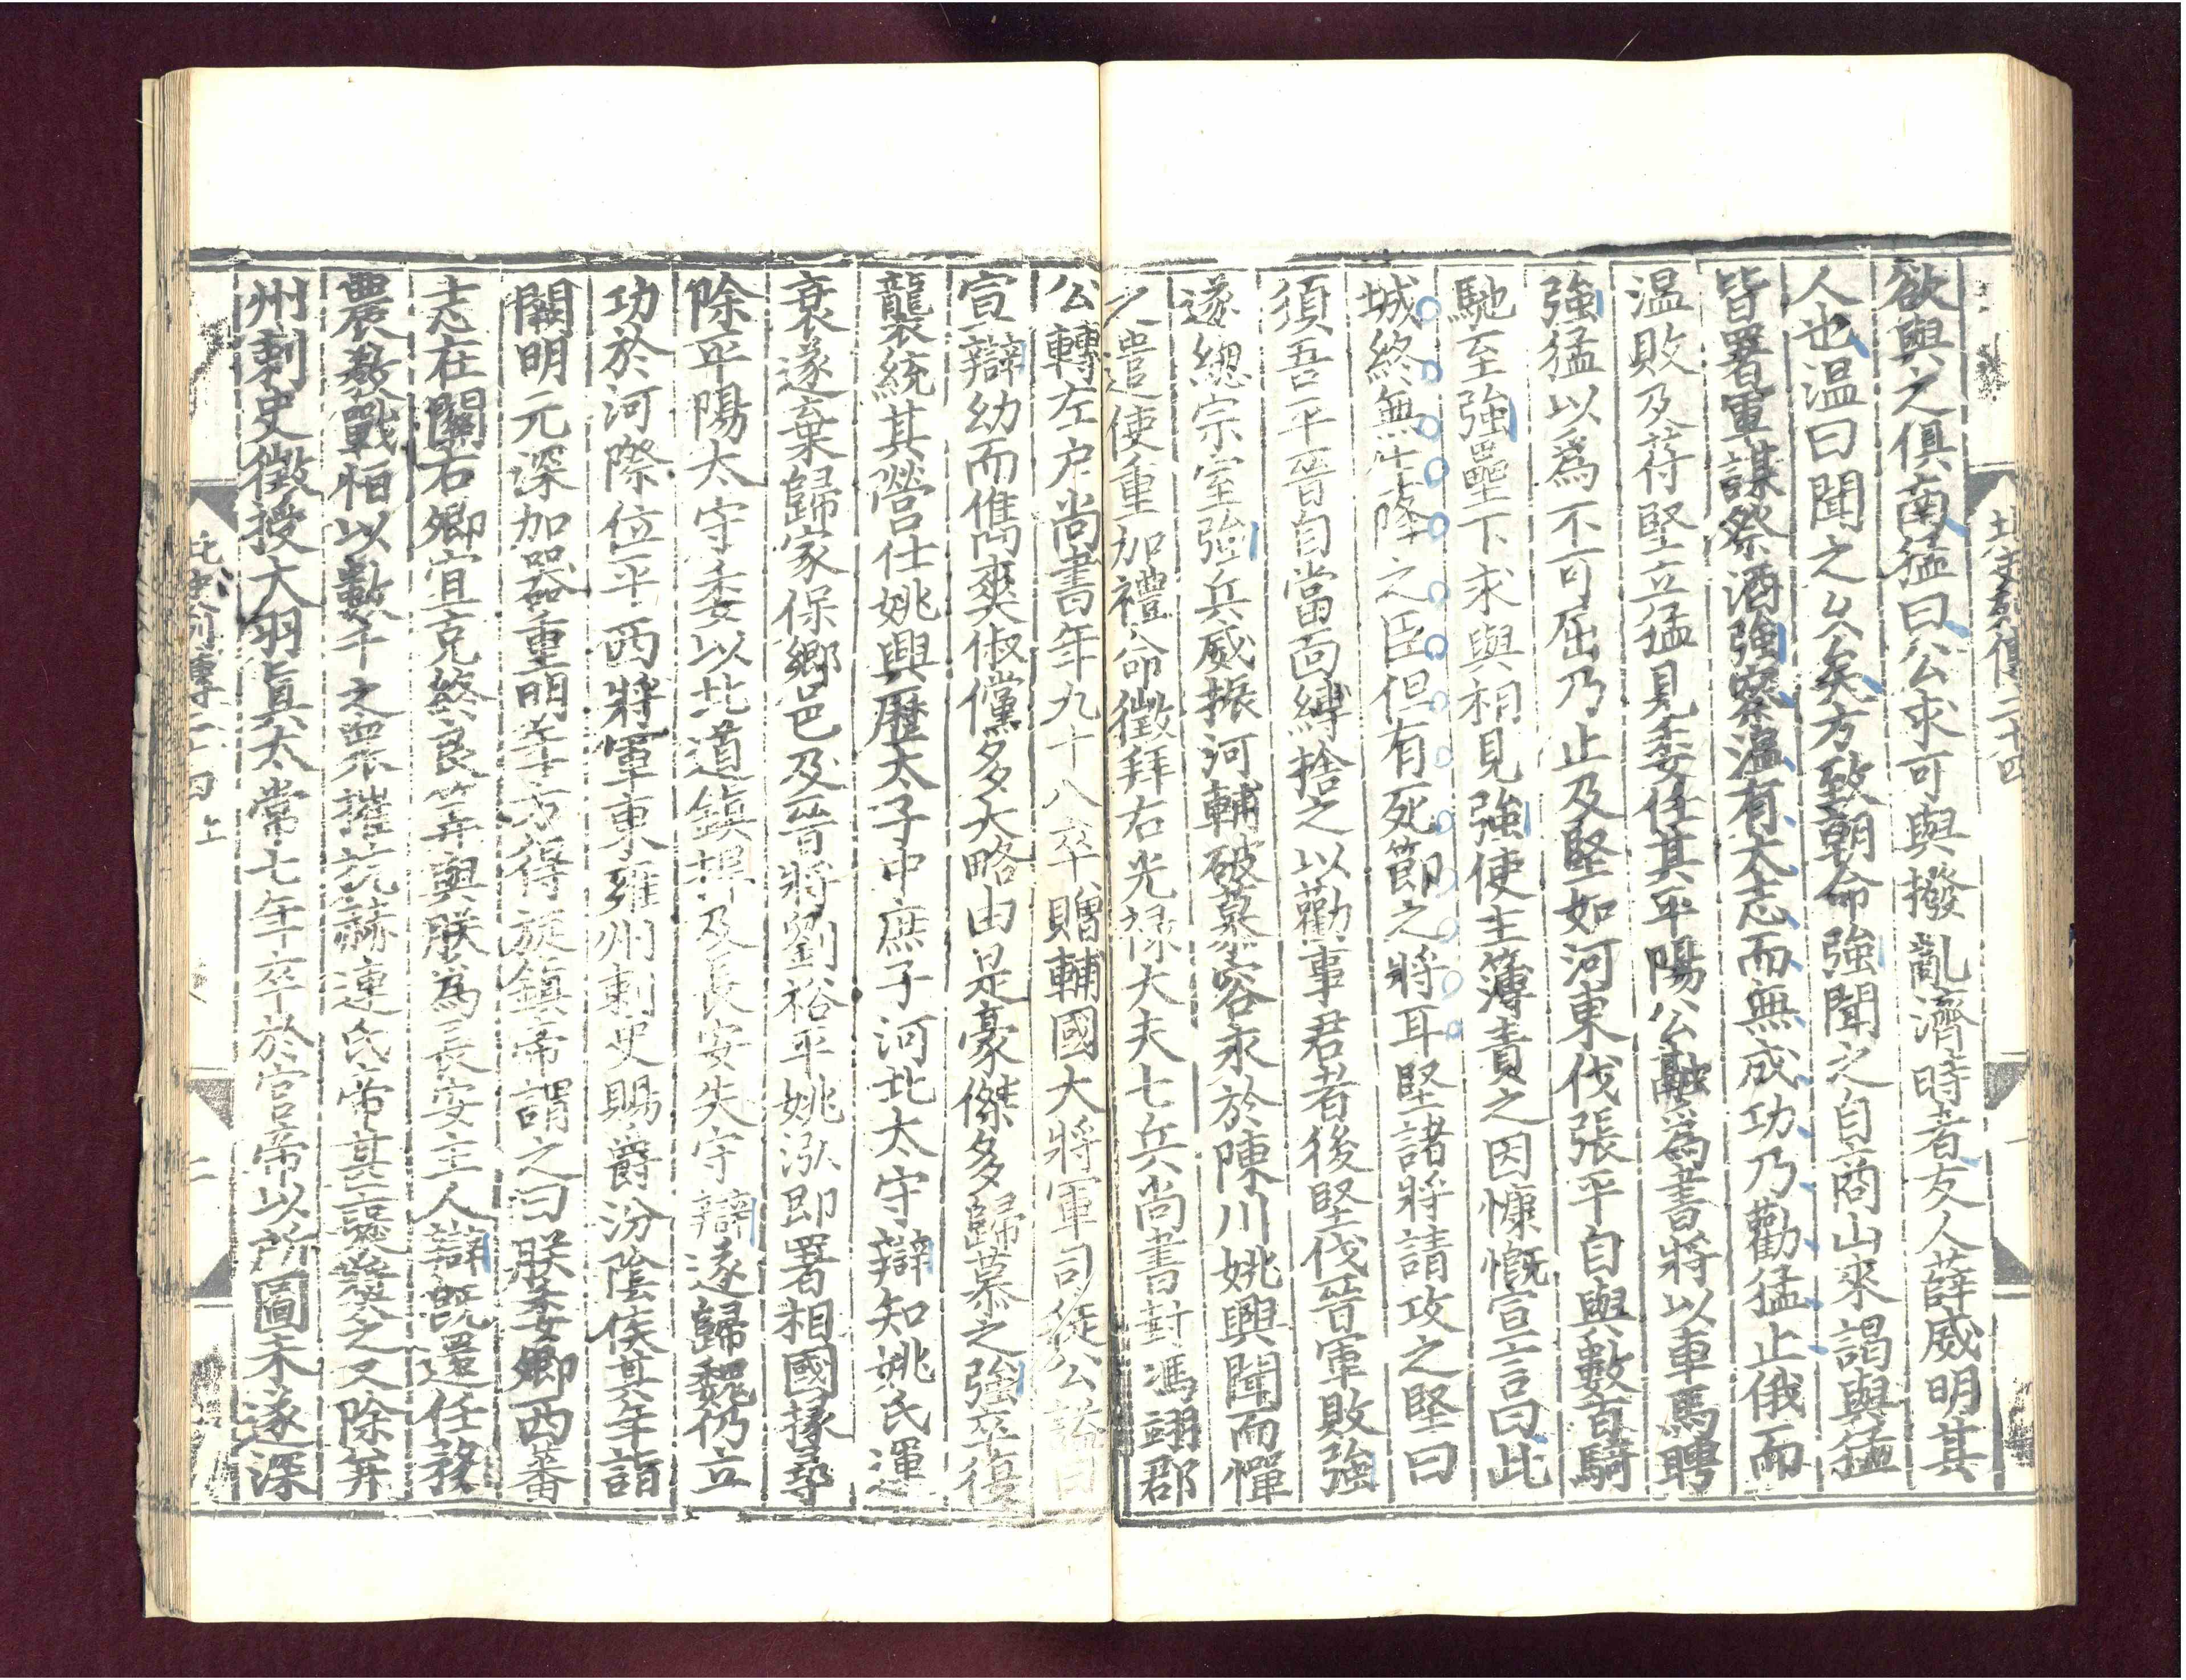 北史列傳二十四
欲與之俱南猛曰公求可與撥亂濟時者友人薛威明其
人也温曰聞之久矣方致朝命強聞之自商山來謁與猛
皆署軍謀祭酒強察温有大志而無成功乃勸猛止俄而
温敗及苻堅立猛見委任其平陽公融為書將以車馬聘
強猛以為不可屈乃止及堅如河東伐張平自與數百騎
馳至強壘下求與相見強使主簿責之因慷慨宣言曰此
城終無生降之臣但有死節之將耳堅諸將請攻之堅曰
須吾平晉自當面縛捨之以勸事君者後堅伐晉軍敗強
遂總宗室強兵威振河輔破慕容永於陳川姚興聞而憚
之遣使重加禮命徵拜右光祿大夫七兵尚書封馮翊郡
公轉左戶尚書年九十八卒贈輔國大將軍司徒公謚曰
宣辯幼而儁爽俶儻多大略由是豪傑多歸慕之強卒復
襲統其營仕姚興歷太子中庶子河北太守辯知姚氏運
衰遂棄歸家保鄉邑及晉將劉裕平姚泓即署相國掾尋
除平陽太守委以北道鎮捍及長安失守辯遂歸魏仍立
功於河際位平西將軍東雍州刺史賜爵汾陰侯其年詣
闕明元深加器重明年方得旋鎮帝謂之曰朕委卿西蕃
志在關右卿宜克終良筭與朕為長安主人辯既還任務
農教戰恒以數千之眾摧抗赫連氏帝甚褒奬之又除并
州刺史徵授大羽真太常七年卒於官帝以所圖未遂深
北史列傳二十四上
二